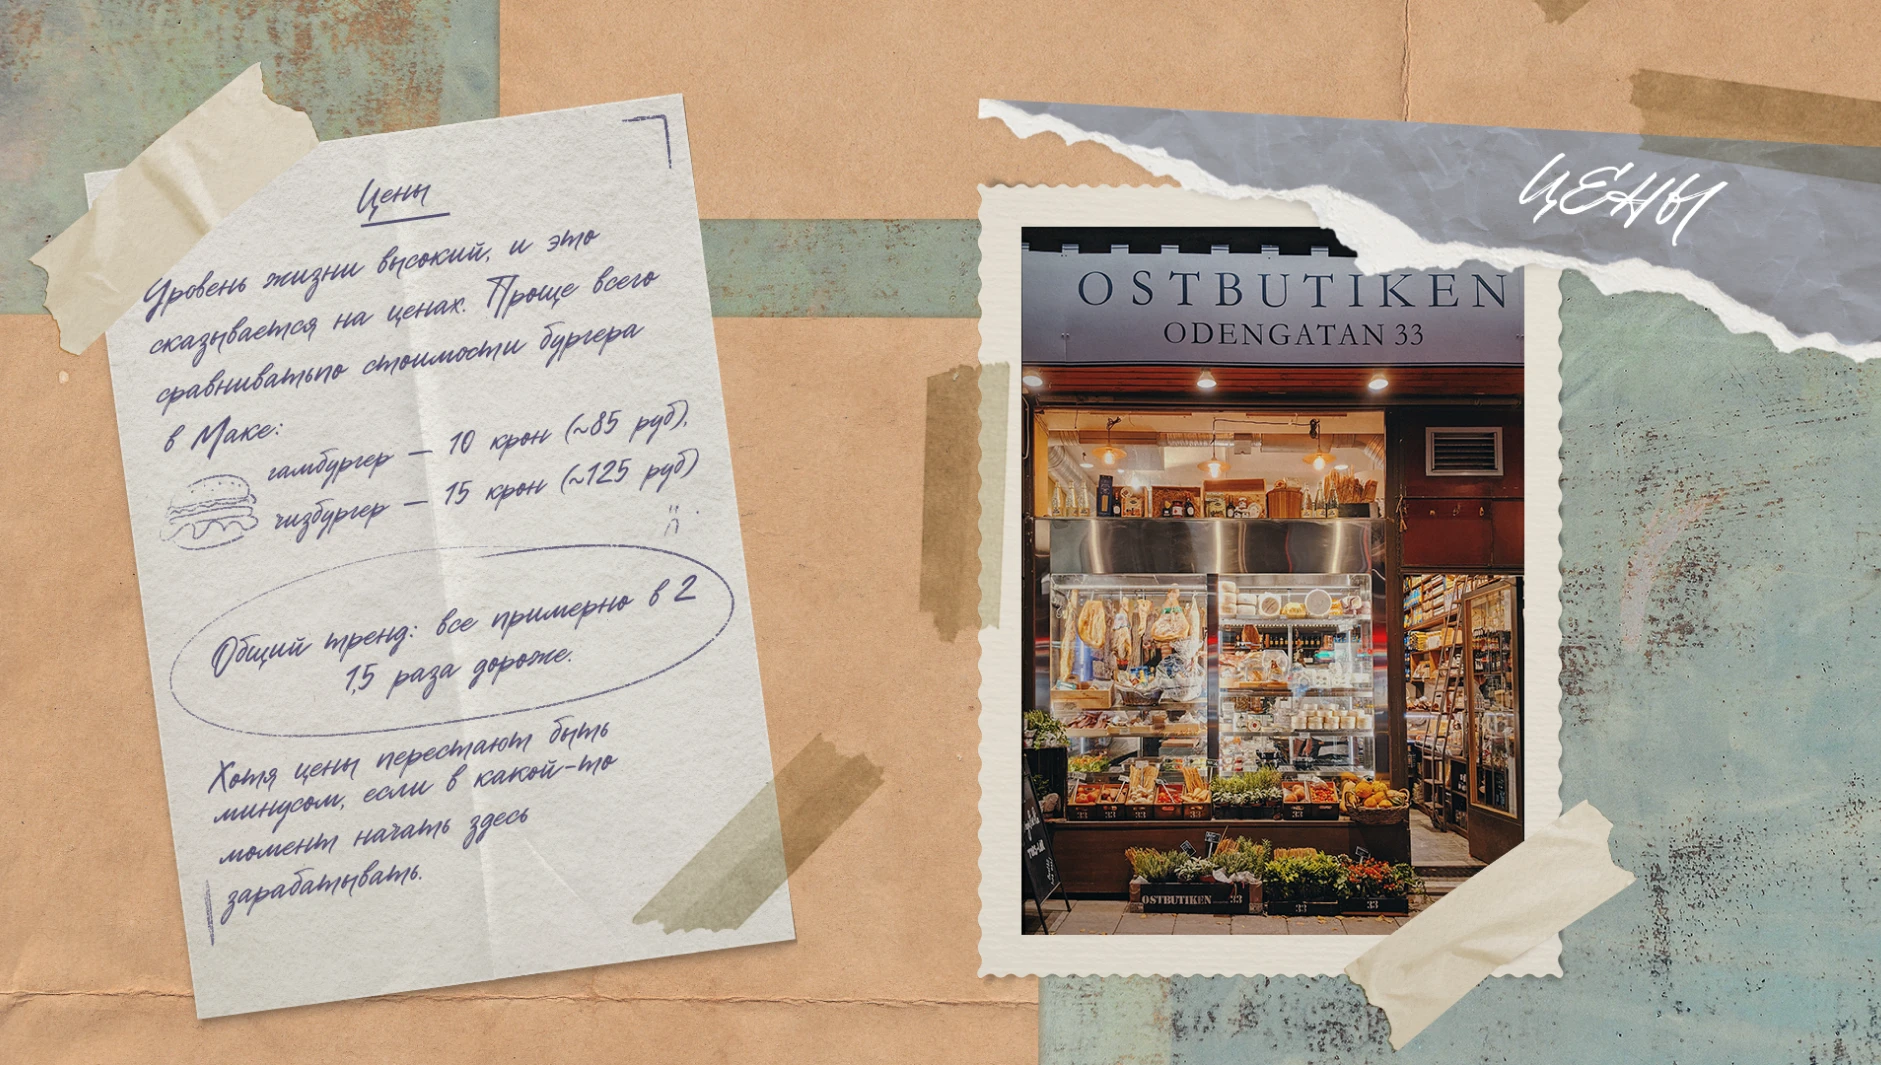 Цены
Уровень жизни высокий, и это
сказывается на ценах. Проще всего
сравниватьпо стоимости бургера
в Маке:
гамбургер — 10 крон (~85 руб),
чизбургер — 15 крон (~125 руб)
Общий тренд: все примерно в 2
1,5 раза дороже.
Хотя цены перестают быть
минусом, если в какой-то
момент начать здесь
зарабатывать.
ЦЕНЫ
OSTBUTIKEN
ODENGATAN 33
33
33
33
OSTBUTIKEN 33
33
33